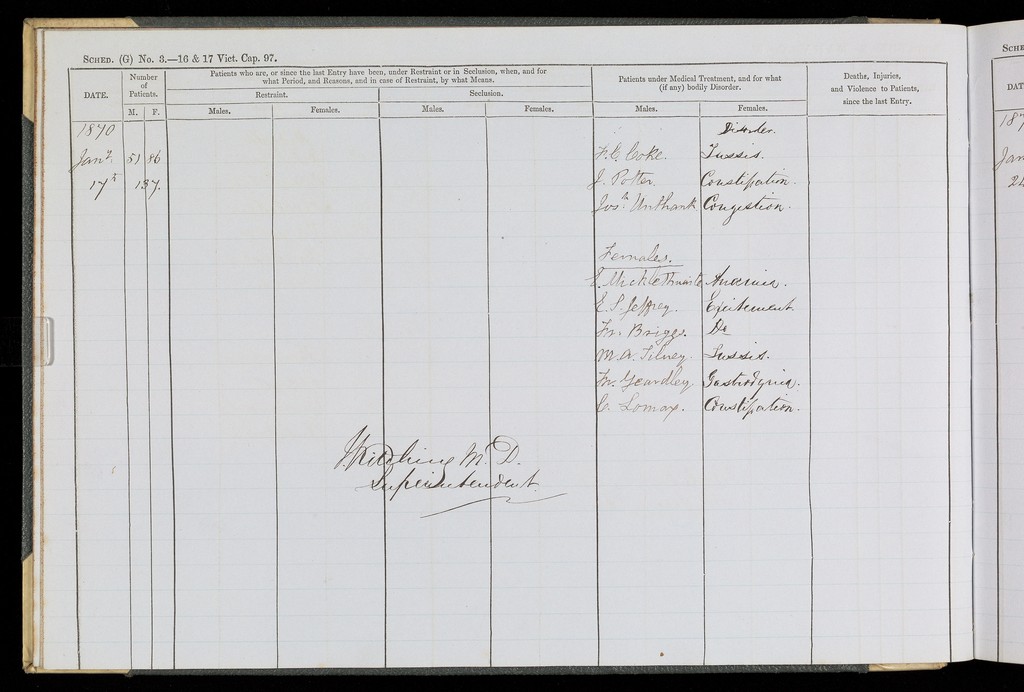 SCHED. (G) No. 3.—16 & 17 Vict. Cap. 97.
DATE.
Number of Patients.
M. F.
Patients who are, or since the last Entry have been, under Restraint or in Seclusion, when, and for what Period, and Reasons, and in case of Restraint, by what Means.
Restraint. Seclusion.
Males. Females. Males. Females.
Patients under Medical Treatment, and for what (if any) bodily Disorder.
Males. Females.
Deaths, Injuries, and Violence to Patients, since the last Entry.
1870 Disorder.
Jany. 51 86 F. C. Coke. Tussis.
17th 137. J. Potter. Constipation.
Josh. Unthank Congestion.
Females.
E. Micklethwaite Anaemia.
E. S. Jeffrey. Excitement.
Fr. Briggs. Do
M. A. Tilney. Tussis.
Fr. Yeardley. Gastrodynia.
C. Lomax. Constipation.
J. Kitching M. D.
Superintendent.
SCHE
DAT
187
Jan
24